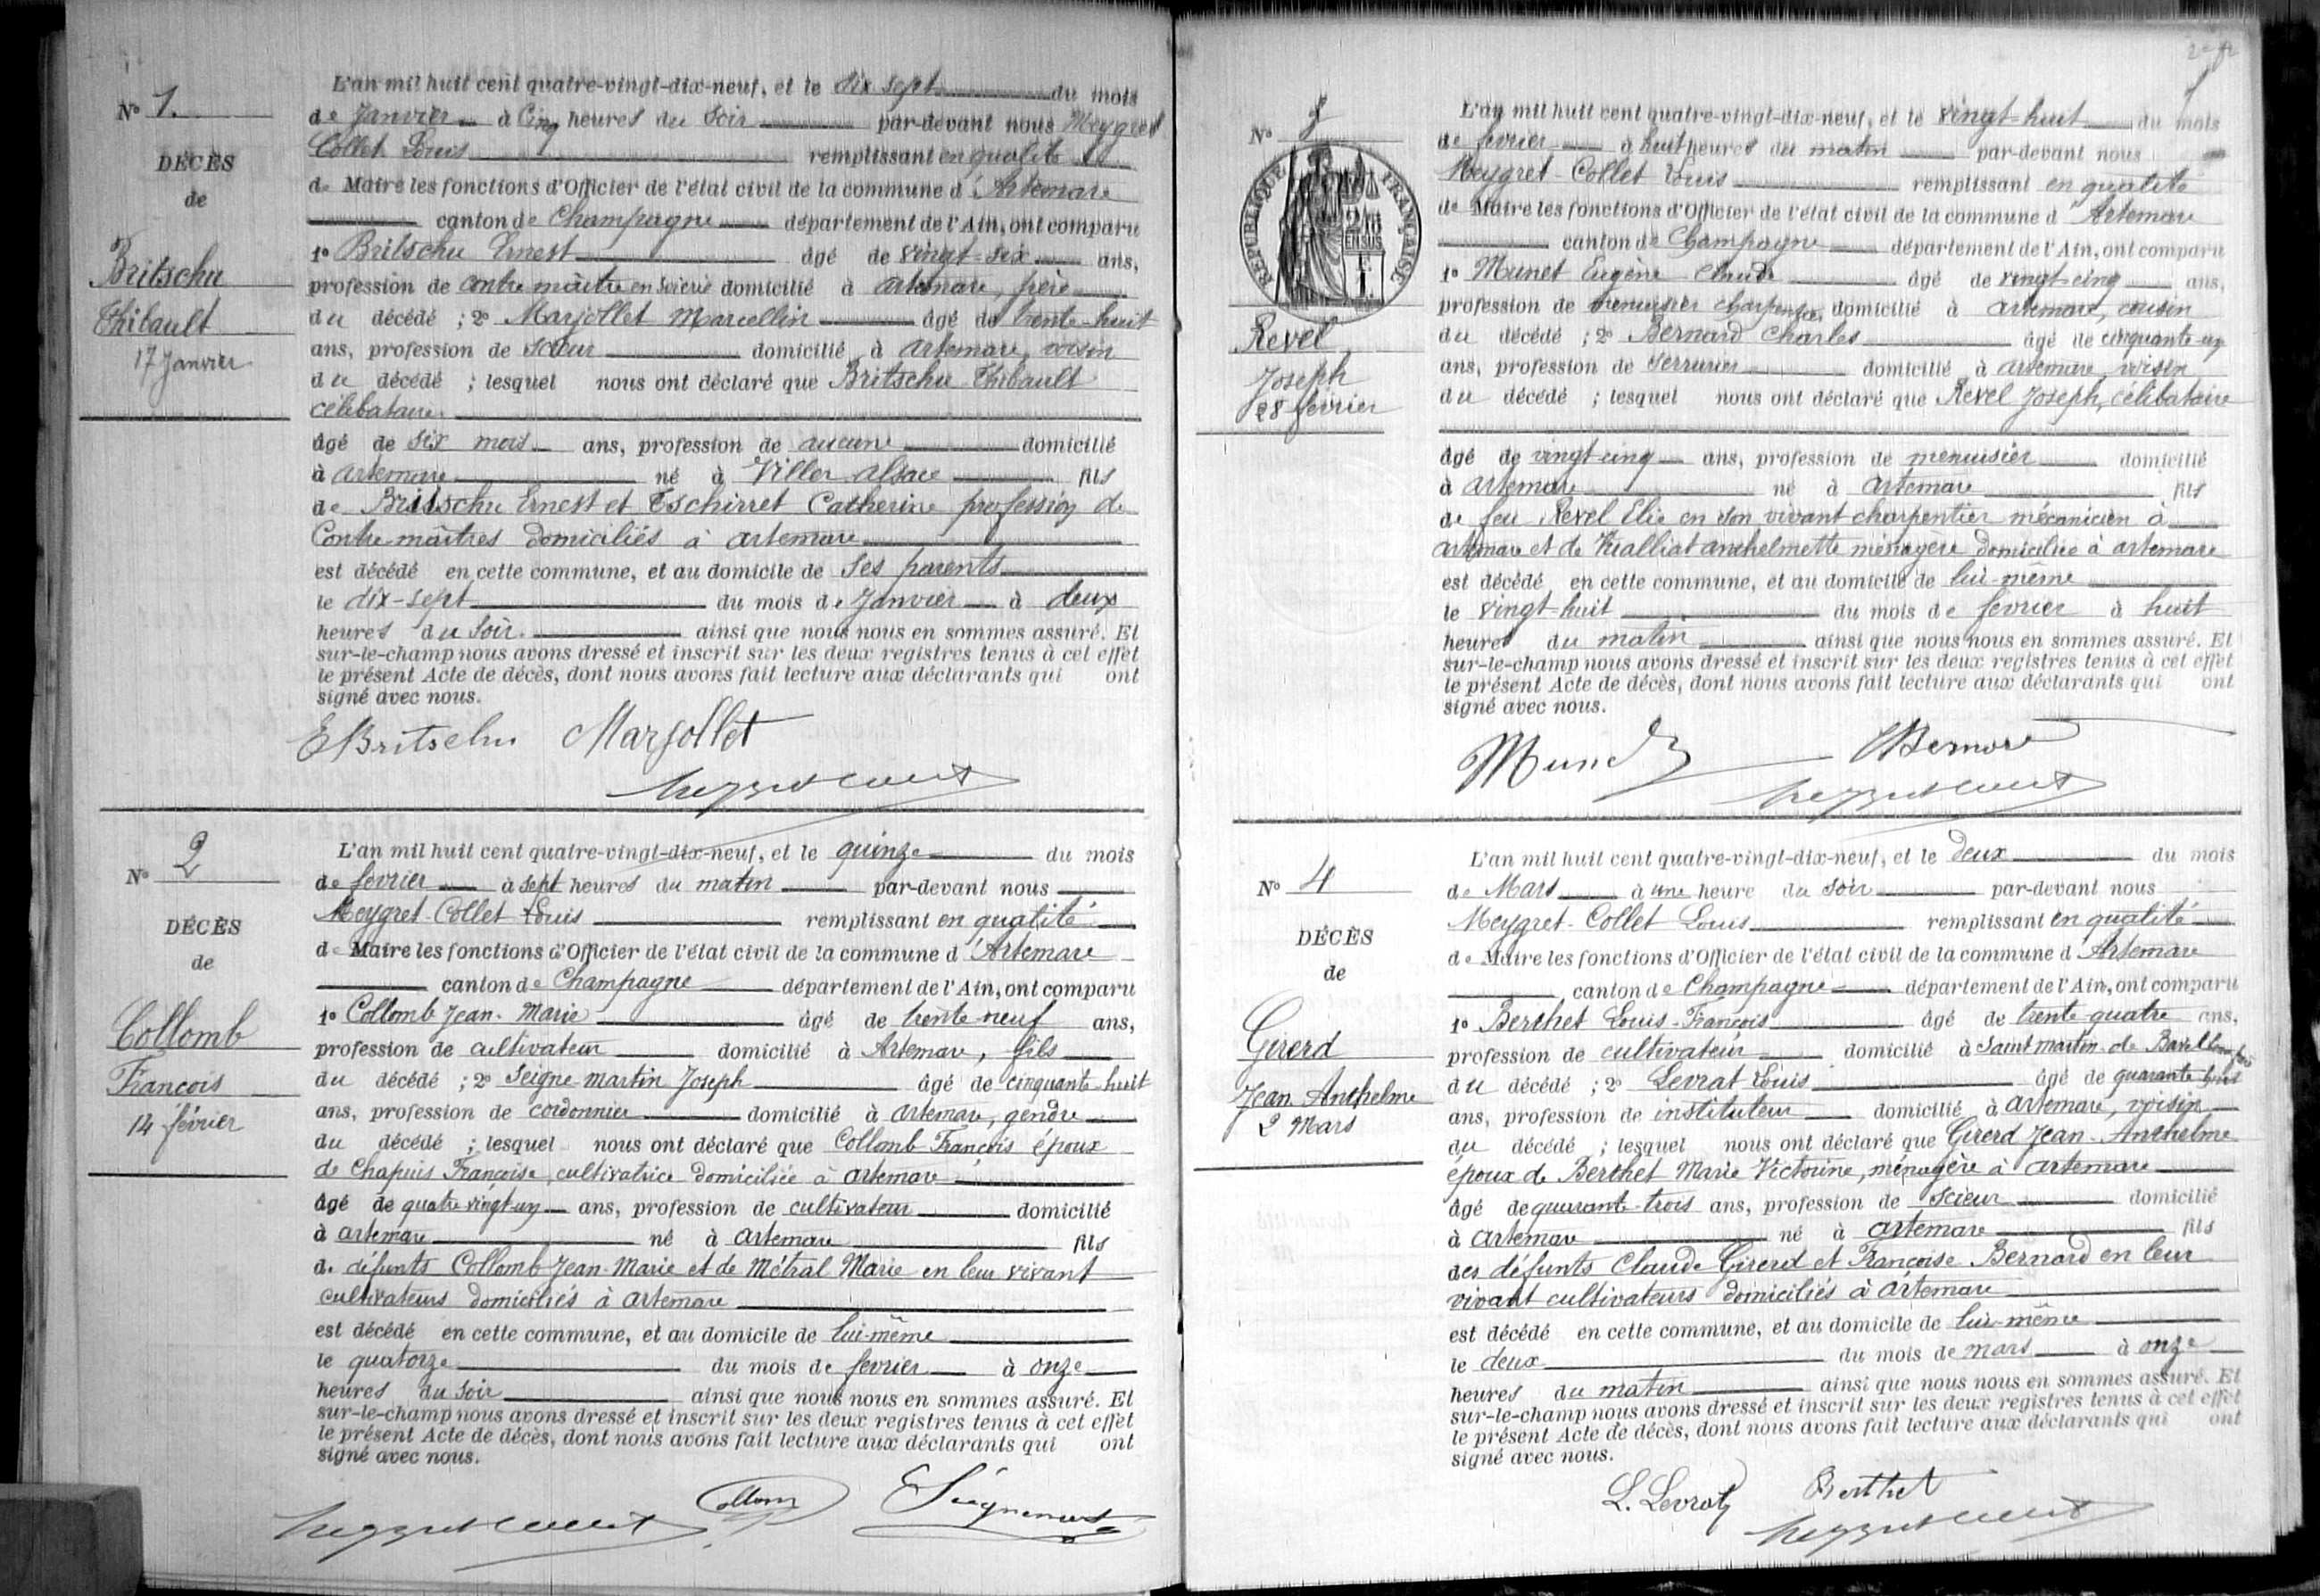 N° 1.
DÉCÈS
de
Britschu
Thibault
17 Janvier
L'an mil huit cent quatre-vingt-dix-neuf, et le dix sept du mois
de Janvier à Cinq heures du Soir par-devant nous Meygret
Collet Louis remplissant en qualité
de Maire les fonctions d'Officier de l'état civil de la commune d'Artemare
canton de Champagne département de l'Ain, ont comparu
1° Britschu Ernest âgé de vingt-six ans,
profession de contre maître en Scierie domicilié à artemare, frère
du décédé ; 2° Marjollet Marcellin âgé de trente-huit
ans, profession de Scieur domicilié à artemare, voisin
du décédé ; lesquel nous ont déclaré que Britschu Thibault
célibataire
âgé de six mois ans, profession de aucune domicilié
à artemare né à Viller alsace fils
de Britschu Ernest et Tschirret Catherine profession de
Contre maîtres domiciliés à artemare
est décédé en cette commune, et au domicile de Ses parents
le dix-sept du mois de Janvier à deux
heures du Soir. ainsi que nous nous en sommes assuré. Et
sur-le-champ nous avons dressé et inscrit sur les deux registres tenus à cet effet
le présent Acte de décès, dont nous avons fait lecture aux déclarants qui ont
signé avec nous.
EBritschu Marjollet
N° 2
DÉCÈS
de
Collomb
François
14 février
L'an mil huit cent quatre-vingt-dix-neuf, et le quinze du mois
de février à sept heures du matin par-devant nous
Meygret-Collet Louis remplissant en qualité
de Maire les fonctions d'Officier de l'état civil de la commune d'Artemare
canton de Champagne département de l'Ain, ont comparu
1° Collomb Jean-Marie âgé de trente neuf ans,
profession de cultivateur domicilié à Artemare, fils
du décédé ; 2° Seigne-martin Joseph âgé de cinquante-huit
ans, profession de cordonnier domicilié à artemare, gendre
du décédé ; lesquel nous ont déclaré que Collomb François époux
de Chapuis Françoise, cultivatrice domiciliée à artemare
âgé de quatre vingt-un ans, profession de cultivateur domicilié
à artemare né à artemare fils
de défunts Collomb Jean-Marie et de Métral Marie en leur vivant
cultivateurs domiciliés à artemare
est décédé en cette commune, et au domicile de lui-même
le quatorze du mois de février à onze
heures du soir ainsi que nous nous en sommes assuré. Et
sur-le-champ nous avons dressé et inscrit sur les deux registres tenus à cet effet
le présent Acte de décès, dont nous avons fait lecture aux déclarants qui ont
signé avec nous.
Collom
N° 3
RÉPUBLIQUE FRANÇAISE
2/10 EN SUS
1 F.
Revel
Joseph
28 février
L'an mil huit cent quatre-vingt-dix-neuf, et le vingt-huit du mois
de février à huit heures du matin par-devant nous
Meygret-Collet Louis remplissant en qualité
de Maire les fonctions d'Officier de l'état civil de la commune d'Artemare
canton de Champagne département de l'Ain, ont comparu
1° Munet Eugène Claude âgé de vingt-cinq ans,
profession de menuisier charpentier domicilié à artemare, cousin
du décédé ; 2° Bernard Charles âgé de cinquante-un
ans, profession de Serrurier domicilié à artemare, voisin
du décédé ; lesquel nous ont déclaré que Revel Joseph, célibataire
âgé de vingt-cinq ans, profession de menuisier domicilié
à artemare né à artemare fils
de feu Revel Elie en son vivant charpentier mécanicien à
artemare et de Vualliat anthelmette ménagère domiciliée à artemare
est décédé en cette commune, et au domicile de lui-même
le vingt-huit du mois de février à huit
heures du matin ainsi que nous nous en sommes assuré. Et
sur-le-champ nous avons dressé et inscrit sur les deux registres tenus à cet effet
le présent Acte de décès, dont nous avons fait lecture aux déclarants qui ont
signé avec nous.
Munet Bernard
N° 4
DÉCÈS
de
Girerd
Jean Anthelme
2 Mars
L'an mil huit cent quatre-vingt-dix-neuf, et le deux du mois
de Mars à une heure du soir par-devant nous
Meygret-Collet Louis remplissant en qualité
de Maire les fonctions d'Officier de l'état civil de la commune d'Artemare
canton de Champagne département de l'Ain, ont comparu
1° Berthet Louis-François âgé de trente quatre ans,
profession de cultivateur domicilié à Saint martin de Bavel
du décédé ; 2° Levrat Louis âgé de quarante
ans, profession de instituteur domicilié à artemare, voisin
du décédé ; lesquel nous ont déclaré que Girerd Jean-Anthelme
époux de Berthet Marie Victorine, ménagère à artemare
âgé de quarante-trois ans, profession de scieur domicilié
à artemare né à artemare fils
des défunts Claude Girerd et Françoise Bernard en leur
vivant cultivateurs domiciliés à artemare
est décédé en cette commune, et au domicile de lui-même
le deux du mois de mars à onze
heures du matin ainsi que nous nous en sommes assuré. Et
sur-le-champ nous avons dressé et inscrit sur les deux registres tenus à cet effet
le présent Acte de décès, dont nous avons fait lecture aux déclarants qui ont
signé avec nous.
L. Levrat Berthet